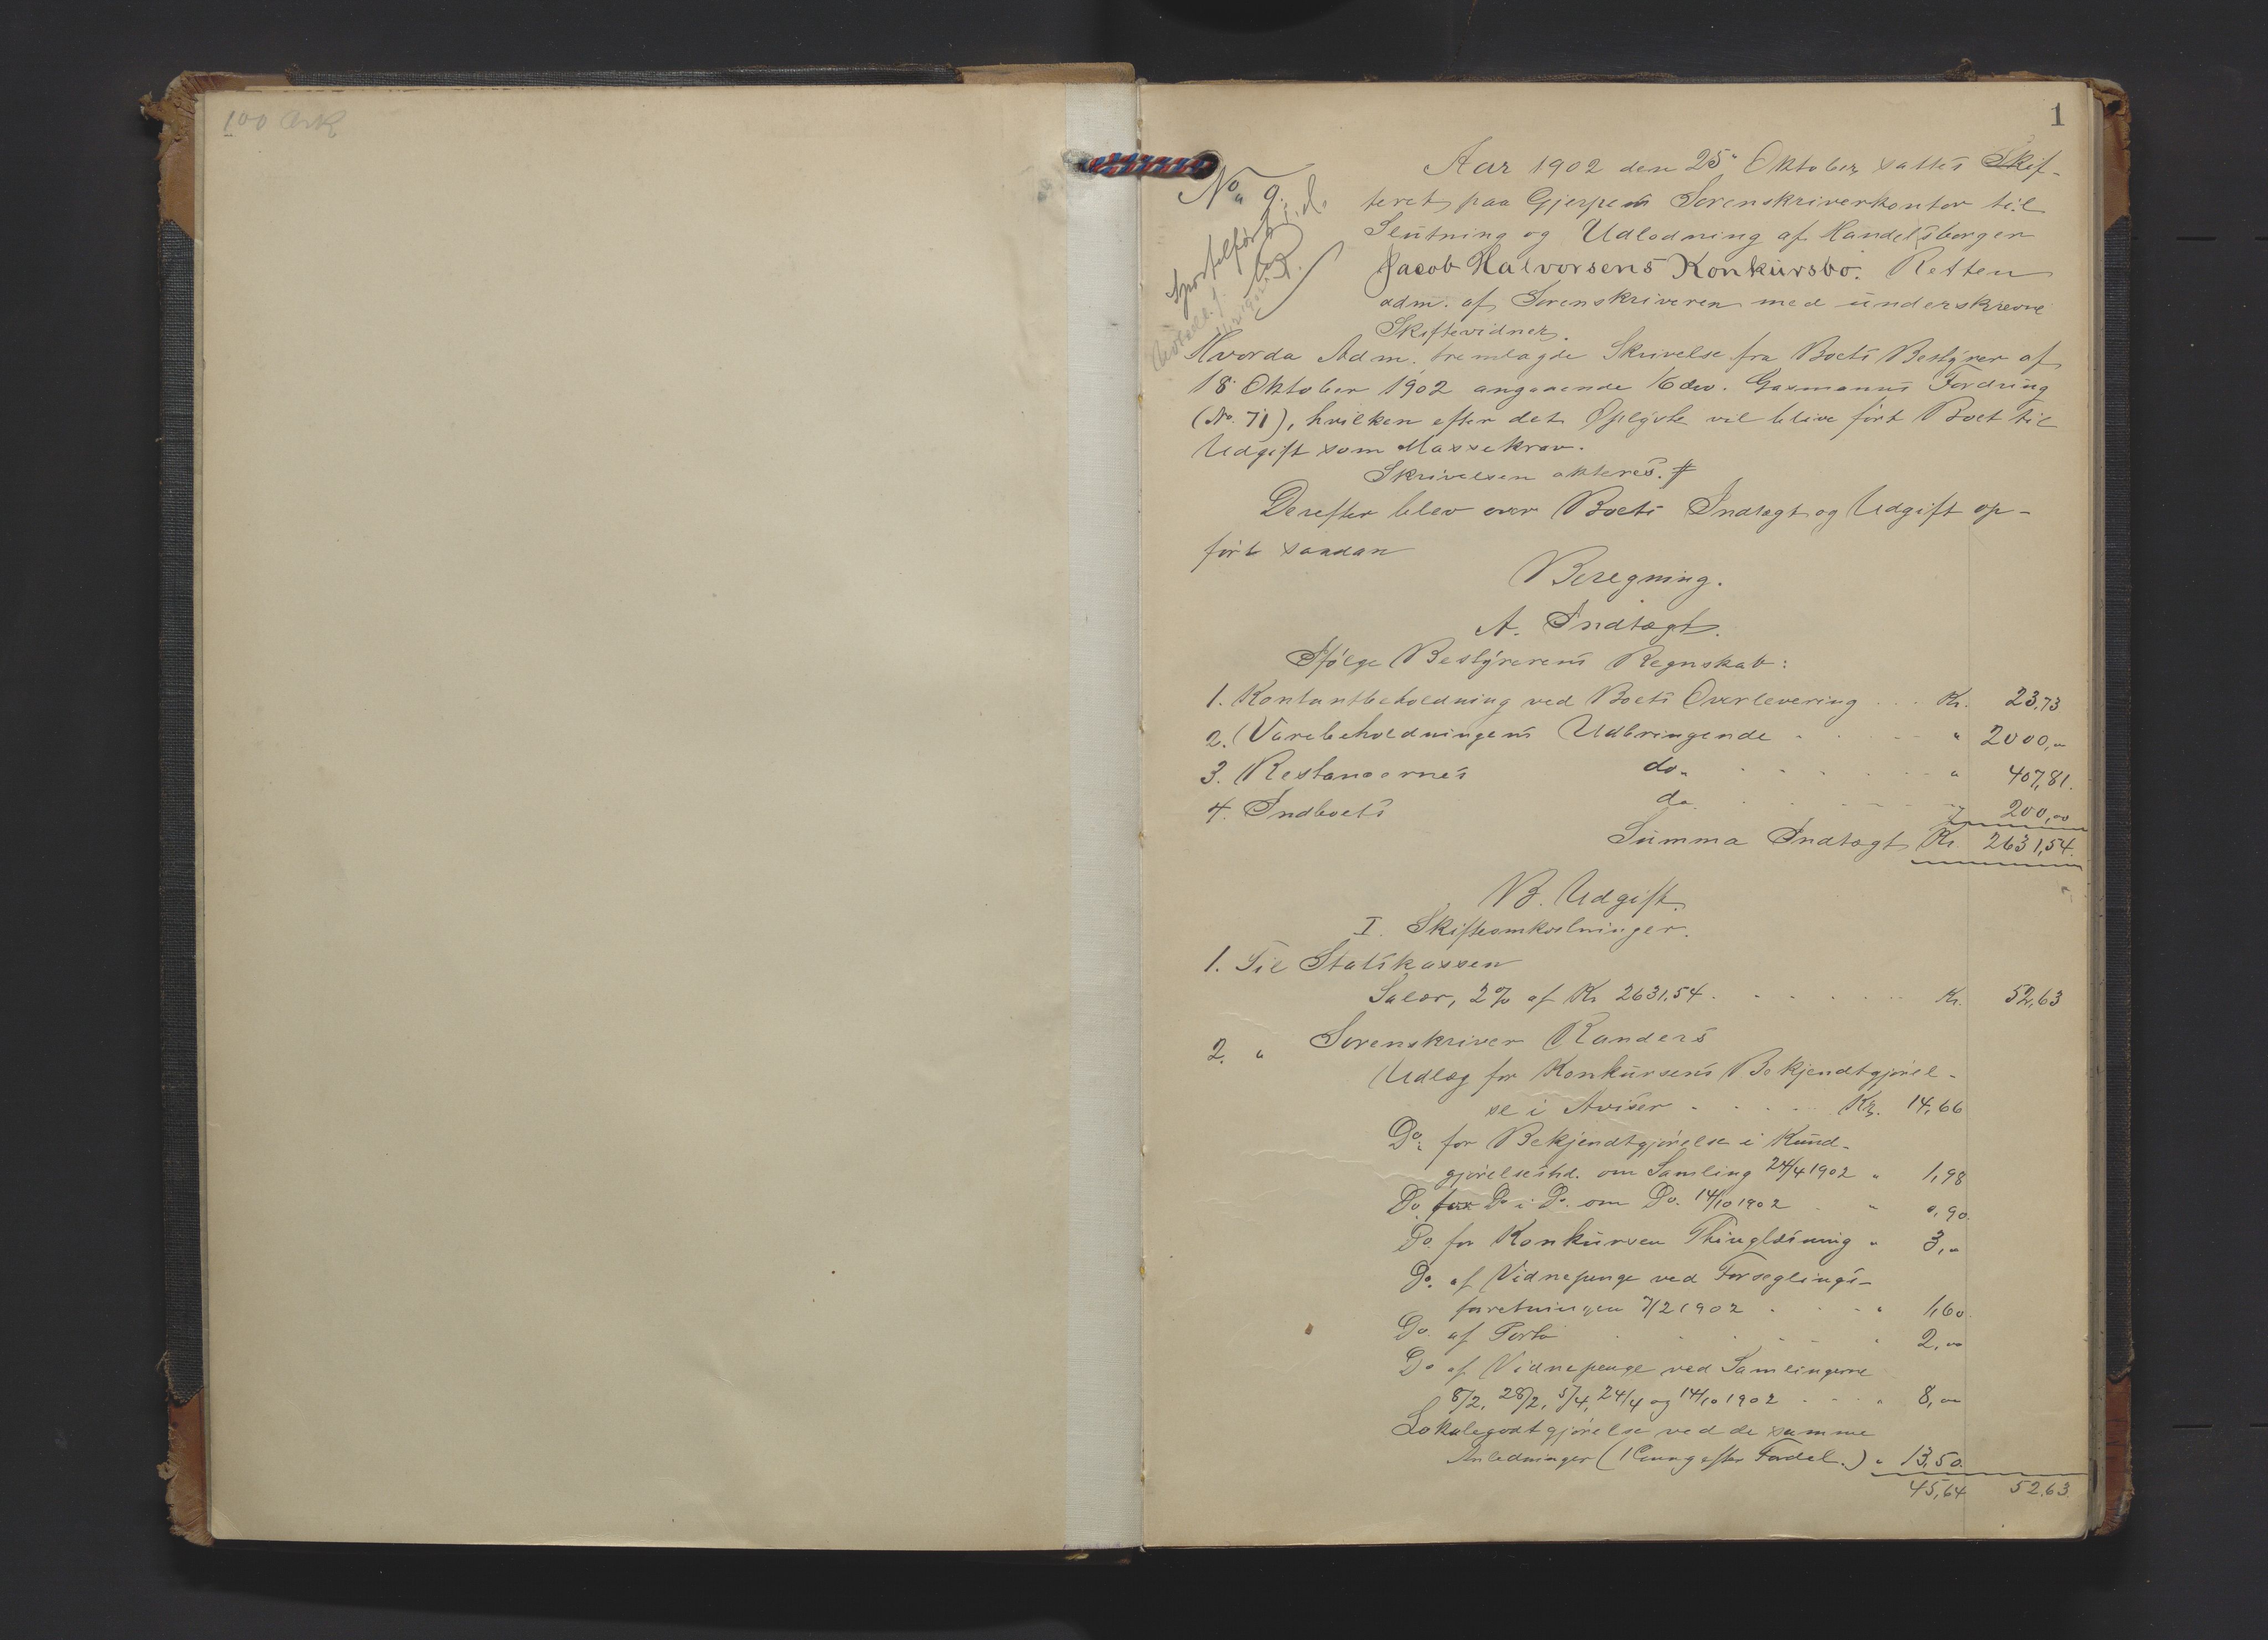 100 Ark
1
No. 9.
Sportelført
Aar 1902 den 25. Oktober sattes Skif-
teret paa Gjerpens Sorenskriverkontor til
Slutning og Udlodning af Handelsborger
Jacob Halvorsens Konkursbo. Retten
adm. af Sorenskriveren med underskrevne
Skiftevidner.
Hvorda Adm. fremlagde Skrivelse fra Boets Bestyrer af
18 Oktober 1902 angaaende Edv. Gasmanns Fordring
(No. 71), hvilken efter det Oplyste vil blive ført Boet til
Udgift som Massekrav.
Skrivelsen akteres. #
Derefter blev over Boets Indtægt og Udgift op-
ført saadan
Beregning.
A. Indtægt.
Ifølge Bestyrerens Regnskab:
1. Kontantbeholdning ved Boets Overlevering . . Kr. 23,73
2. Varebeholdningens Udbringende . . . . " 2000,00
3. Restancernes do. . . . . . . " 407,81.
4. Indboets do. . . . . . " 200,00
Summa Indtægt Kr. 2631,54.
B. Udgift.
I. Skifteomkostninger.
1. Til Statskassen
Salær, 2% af Kr. 2631,54 . . . . . . Kr. 52,63
2. " Sorenskriver Randers
Udlæg for Konkursens Bekjendtgjørel-
se i Aviser . . . . . Kr. 14,66
Do. for Bekjendtgjørelse i Kund-
gjørelsestid. om Samling 24/4 1902 " 1,98
Do. for Do. i Do. om Do. 14/10 1902 . " 0,90.
Do. for Konkursens Thinglæsning " 3,00
Do. af Vidnepenge ved Forseglings-
forretningen 7/2 1902 . . . " 1,60.
Do. af Porto . . . . . " 2,00
Do. af Vidnepenge ved Samlingerne
8/2, 28/2, 5/4, 24/4 og 14/10 1902 . . . " 8,00
Lokalegodtgjørelse ved de samme
Anledninger ( efter Fordel.) " 13,50.
45,64 52,63.